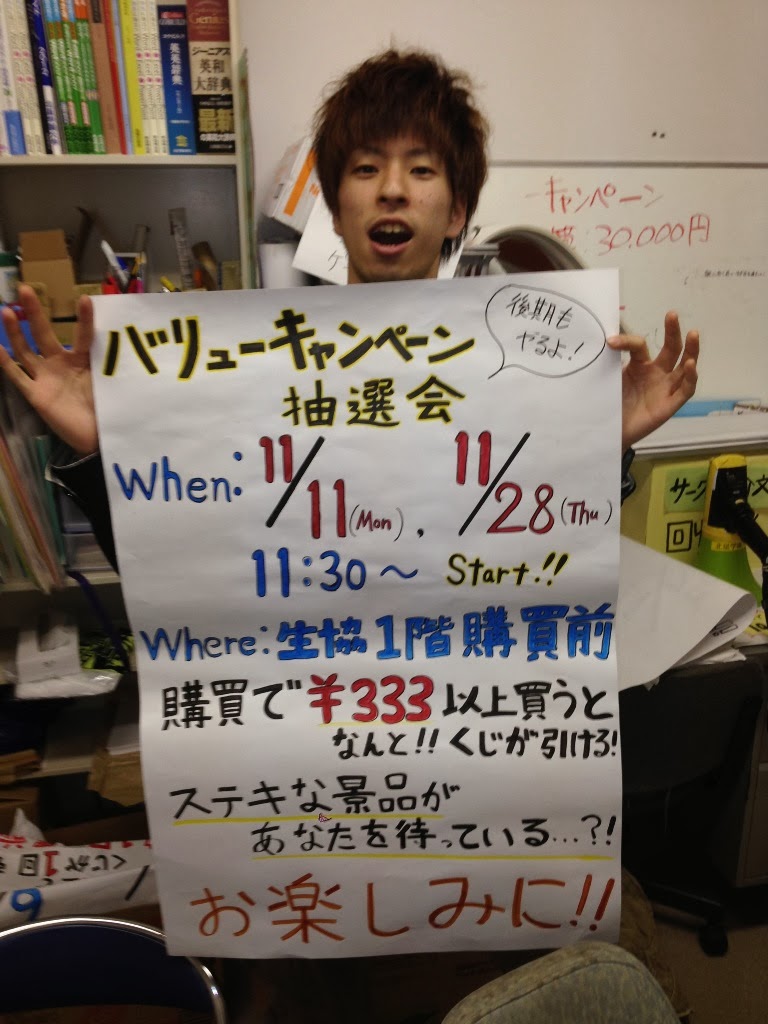 英英辞典
Genius
ジーニアス
英和
大辞典
最新
キャンペーン
30.000円
バリューキャンペーン
後期も
やるよ!
抽選会
When: 11/11(Mon), 11/28(Thu)
11:30〜 Start!!
Where: 生協1階購買前
購買で¥333以上買うと
なんと!!くじが引ける!
ステキな景品が
あなたを待っている…?!
お楽しみに!!
サーク
文